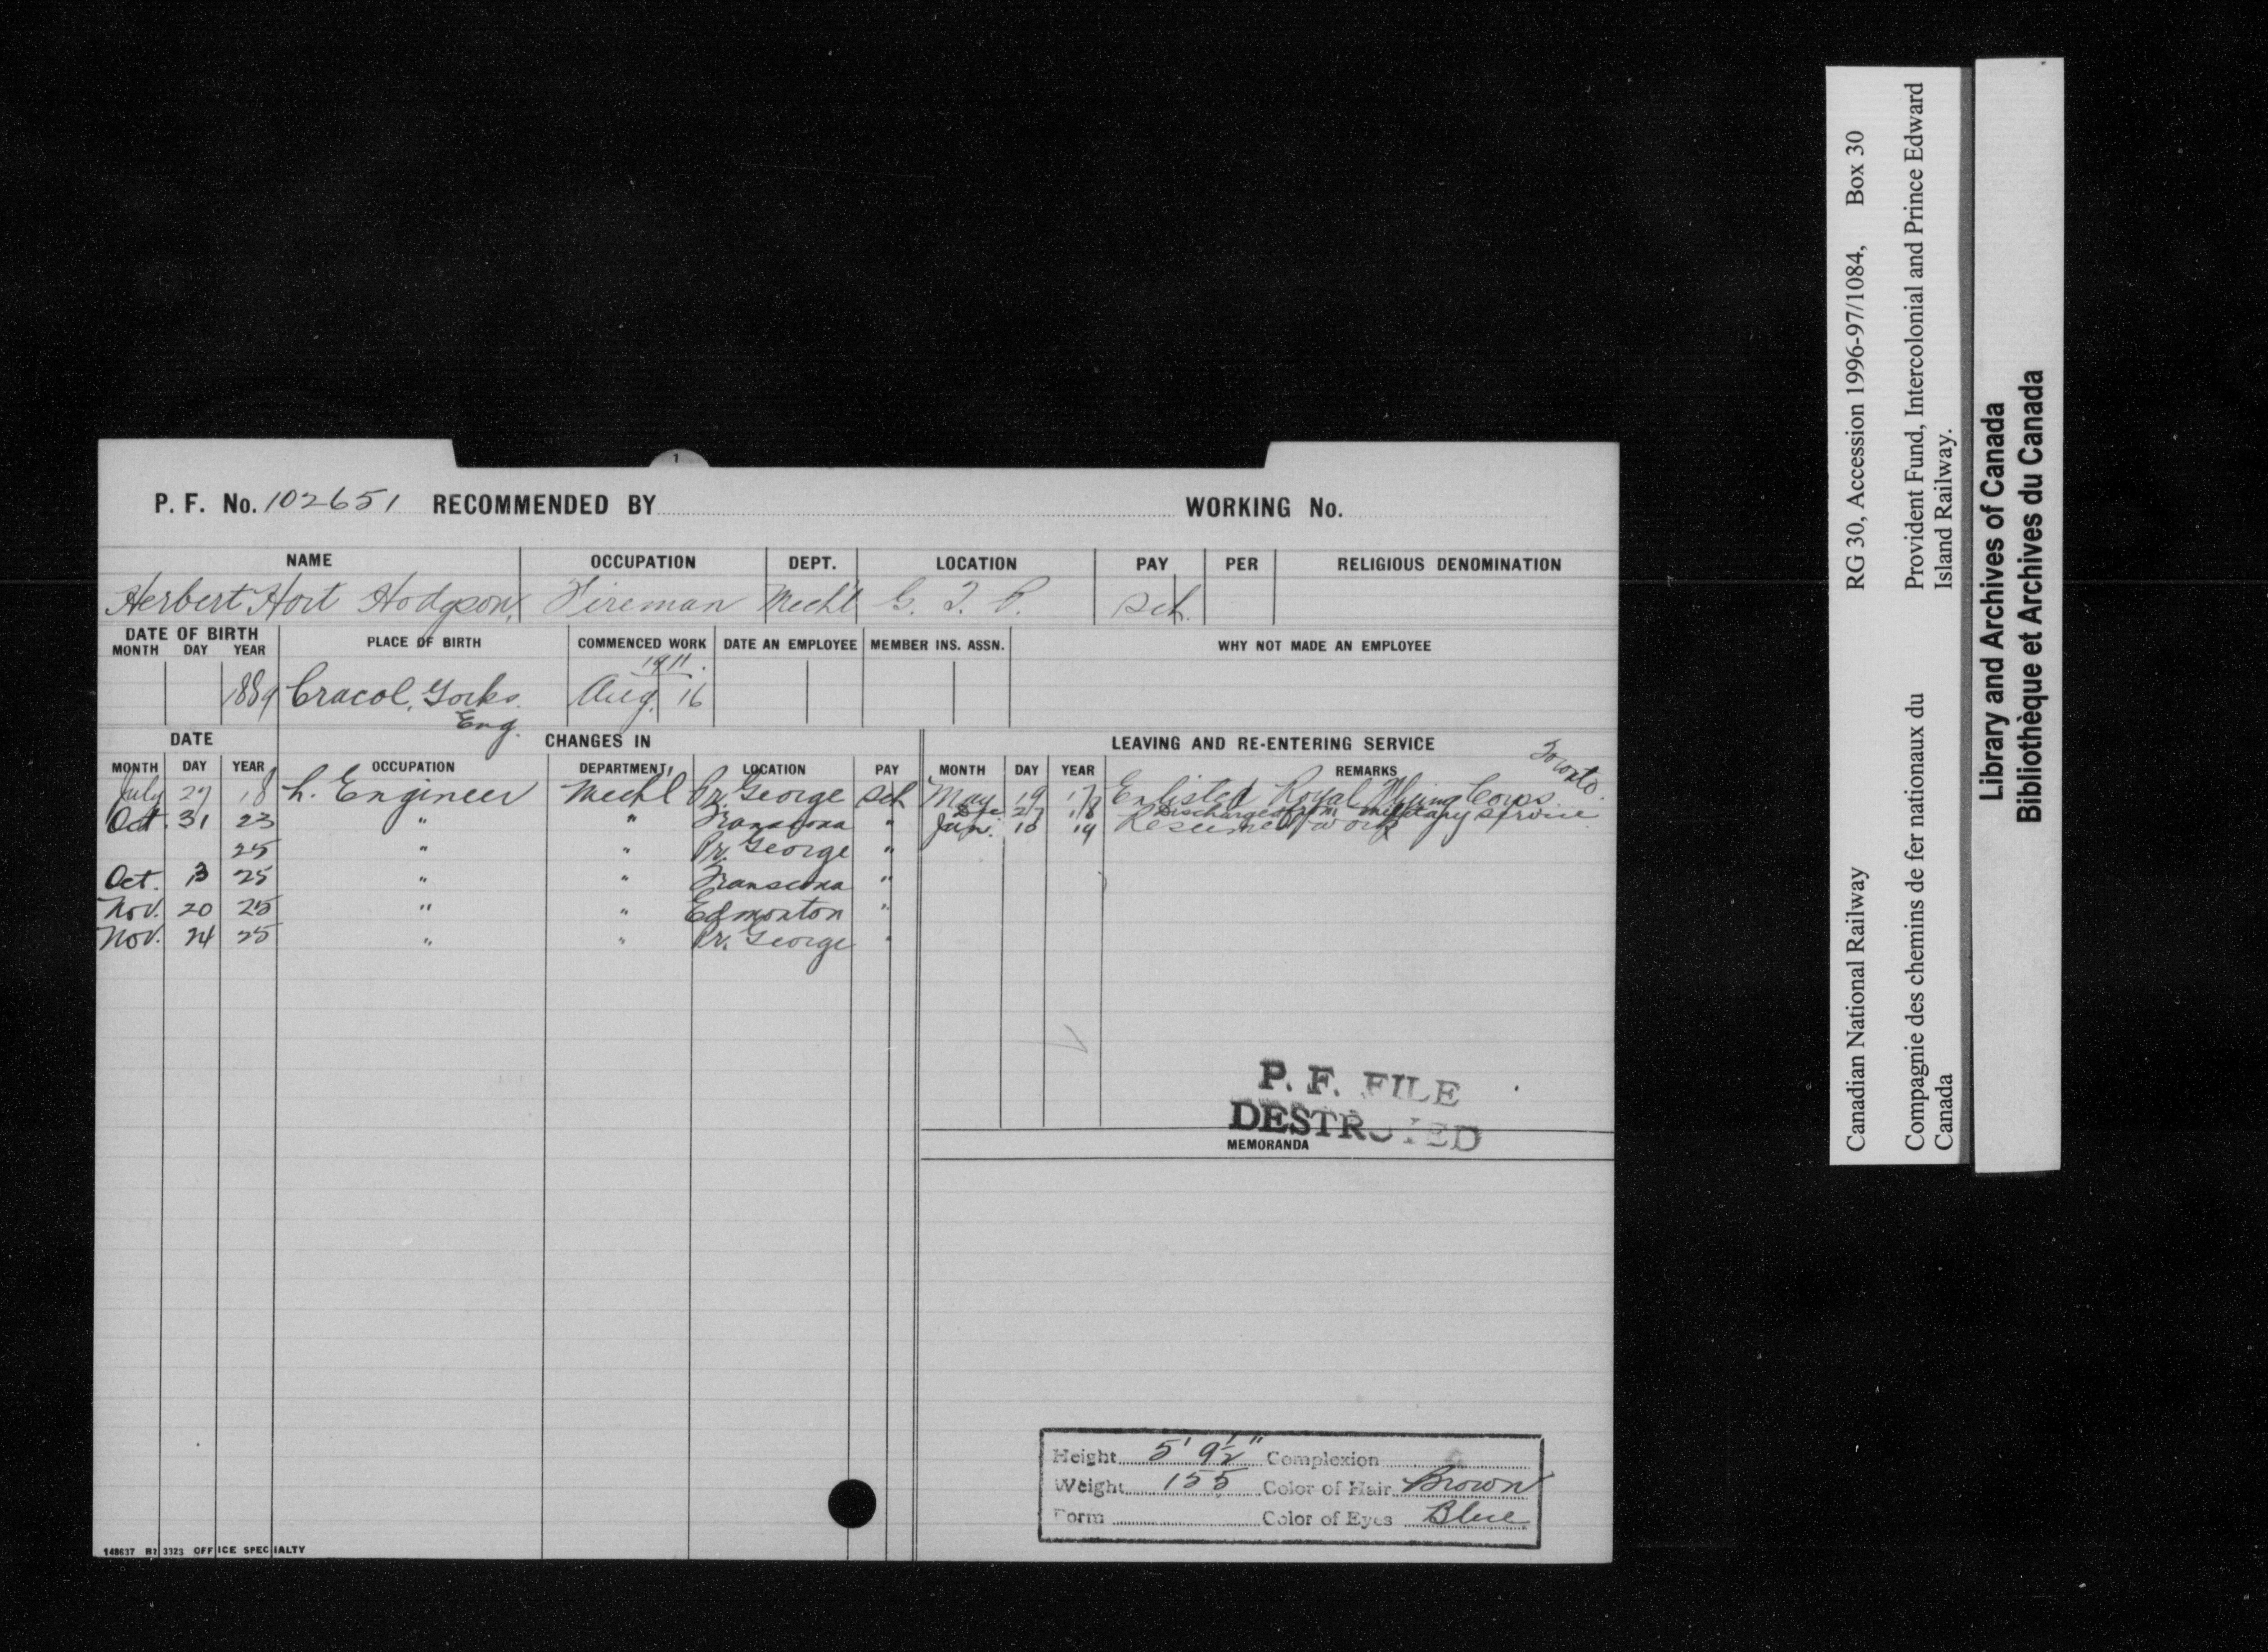 1
P. F. No. 102651 RECOMMENDED BY WORKING No.
NAME OCCUPATION DEPT. LOCATION PAY PER RELIGIOUS DENOMINATION
Herbert Hort Hodgson, Fireman Mechl G. T. P. Sch.
DATE OF BIRTH PLACE OF BIRTH COMMENCED WORK DATE AN EMPLOYEE MEMBER INS. ASSN. WHY NOT MADE AN EMPLOYEE
MONTH DAY YEAR
1911.
1889 Cracol, Yorks. Aug. 16
Eng.
DATE CHANGES IN LEAVING AND RE-ENTERING SERVICE
MONTH DAY YEAR OCCUPATION DEPARTMENT LOCATION PAY MONTH DAY YEAR REMARKS
July 27 18 L. Engineer Mechl Pr. George Sch May 19 17 Enlisted Royal Flying Corps. Toronto.
Dec. 27 18 Discharged from military service
Oct. 31 23 " " Transcona " Jan. 10 19 Resumed work
25 " " Pr. George "
Oct. 13 25 " " Transcona "
Nov. 20 25 " " Edmonton "
Nov. 24 25 " " Pr. George "
P. F. FILE
DESTROYED
MEMORANDA
Height 5' 9½" Complexion
Weight 155 Color of Hair Brown
Form Color of Eyes Blue
148637 OFFICE SPECIALTY
Canadian National Railway RG 30, Accession 1996-97/1084, Box 30
Compagnie des chemins de fer nationaux du Canada
Provident Fund, Intercolonial and Prince Edward Island Railway.
Library and Archives of Canada
Bibliothèque et Archives du Canada